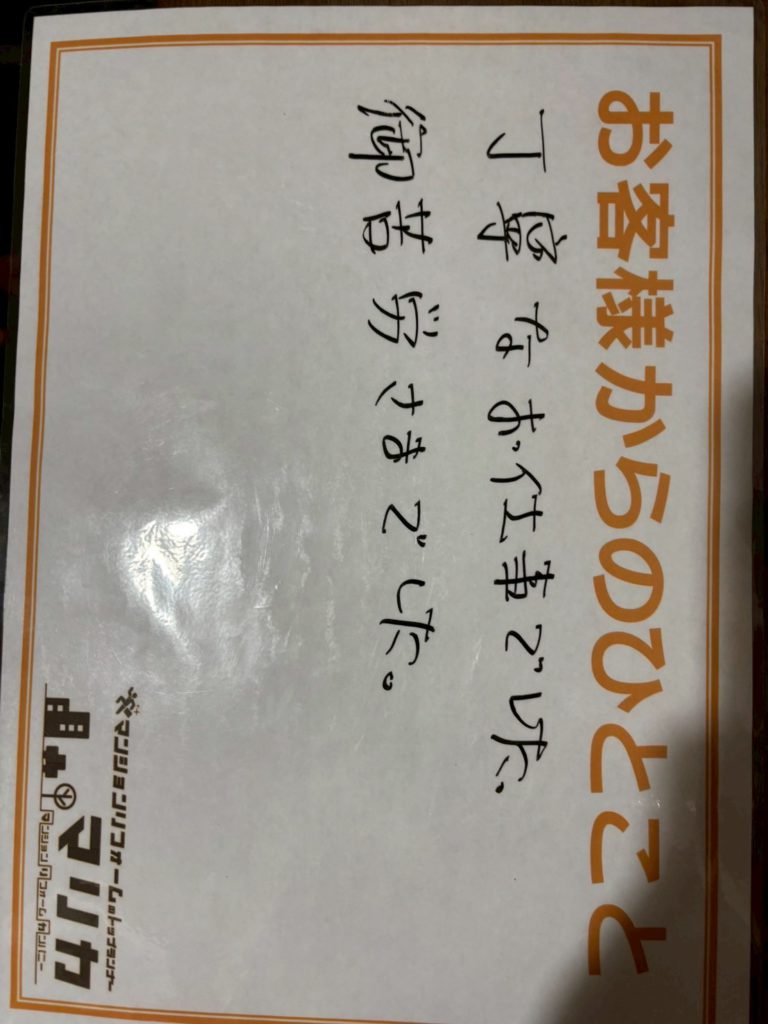 お客様からのひとこと
丁寧なお仕事でした。
御苦労さまでした。
マンションリフォームのトップランナー
マリカ
マンションリフォームカンパニー